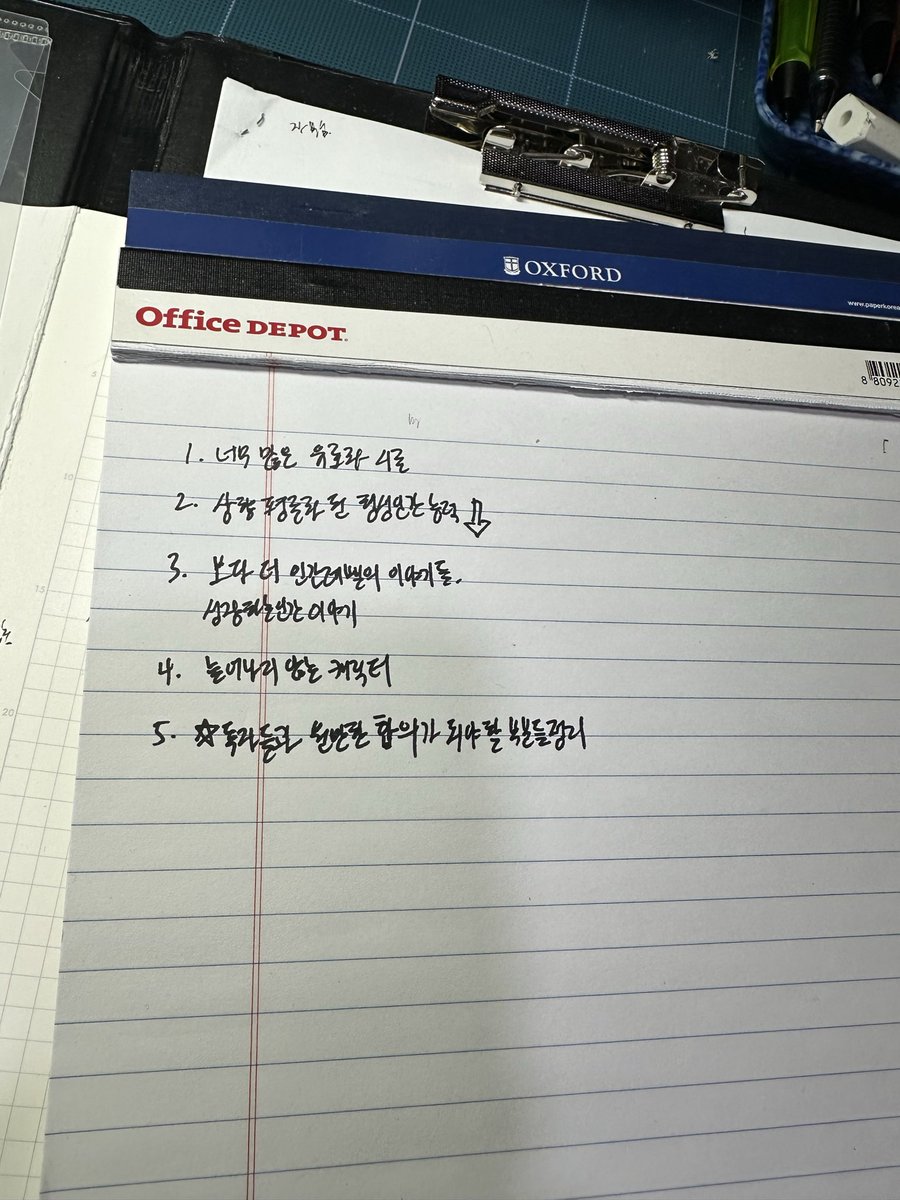 OXFORD
www.paperkorea
Office DEPOT
8 8092
1. 너무 많은 유료화 시도
2. 상향 평준화 된 형성인간 능력 ⇩
3. 보다 더 인간레벨의 이야기들.
성장하는 인간 이야기
4. 늘어나지 않는 캐릭터
5. ☆독자들과 원만한 합의가 되야 할 부분들 정리